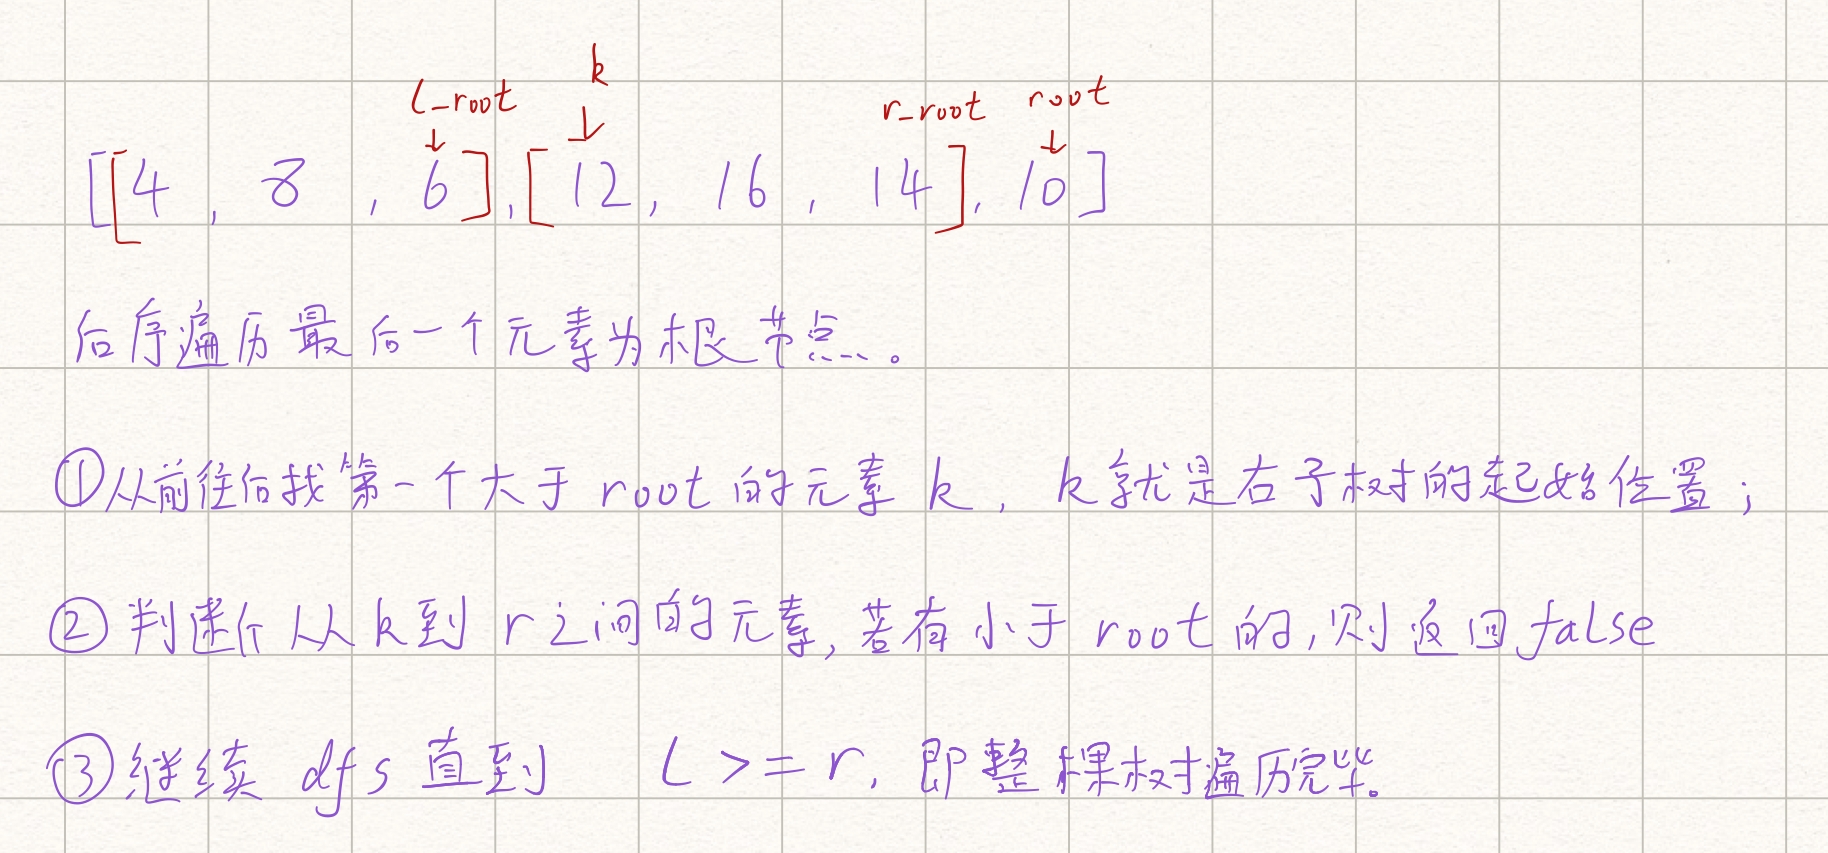 k
l_root
r_root
root
[[4, 8, 6],[12, 16, 14], 10]
后序遍历最后一个元素为根节点。
①从前往后找第一个大于 root 的元素 k, k就是右子树的起始位置;
② 判 从 k 到 r 之间的元素,若有小于 root 的,则返回 false
③继续 dfs 直到 l >= r, 即整棵树遍历完毕。